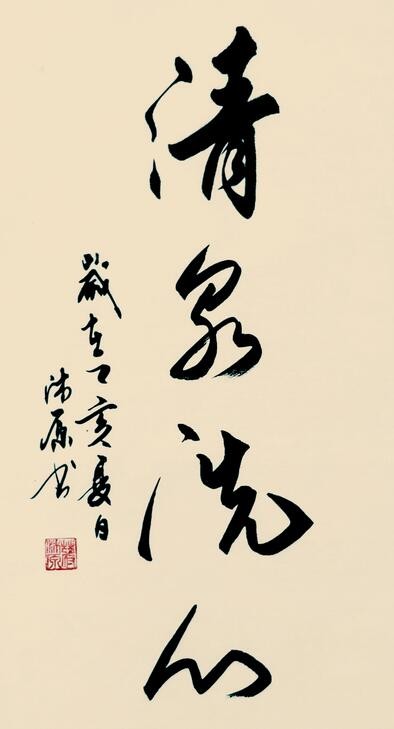 清泉洗心
歲在丁亥夏日
沛原书